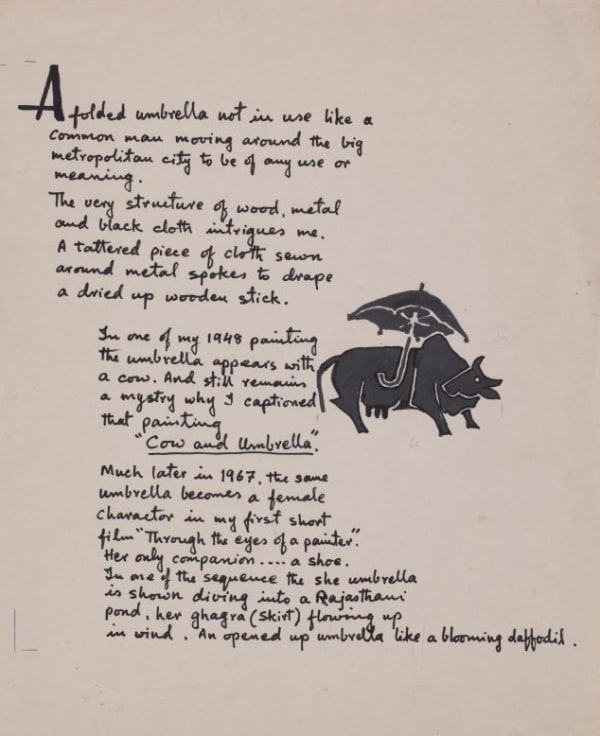 A folded umbrella not in use like a
common man moving around the big
metropolitan city to be of any use or
meaning.
The very structure of wood, metal
and black cloth intrigues me.
A tattered piece of cloth sewn
around metal spokes to drape
a dried up wooden stick.
In one of my 1948 painting
the umbrella appears with
a cow. And still remains
a mystry why I captioned
that painting
"Cow and Umbrella".
Much later in 1967, the same
umbrella becomes a female
charactor in my first short
film "Through the eyes of a painter".
Her only companion.... a shoe.
In one of the sequence the she umbrella
is shown diving into a Rajasthani
pond, her ghagra (skirt) flowing up
in wind. An opened up umbrella like a blooming daffodil.